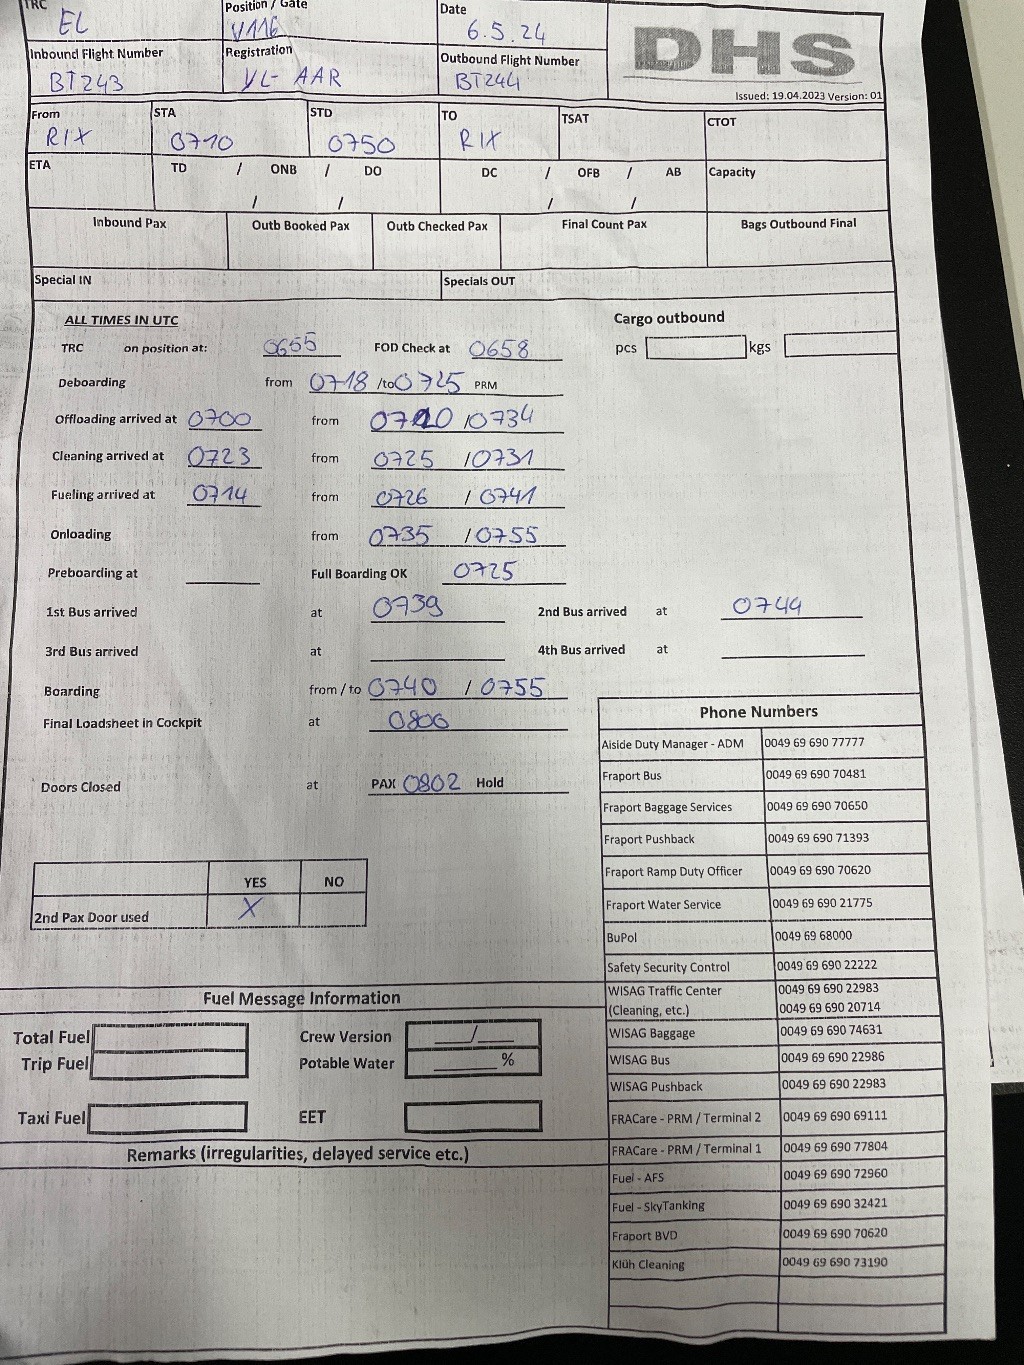 TRC EL Position / Gate V116 Date 6.5.24 DHS
Inbound Flight Number BT243 Registration YL-AAR Outbound Flight Number BT244
Issued: 19.04.2023 Version: 01
From RIX STA 0710 STD 0750 TO RIX TSAT CTOT
ETA TD / ONB / DO DC / OFB / AB Capacity
/ / / /
Inbound Pax Outb Booked Pax Outb Checked Pax Final Count Pax Bags Outbound Final
Special IN Specials OUT
ALL TIMES IN UTC Cargo outbound
TRC on position at: 0655 FOD Check at 0658 pcs kgs
Deboarding from 0718 /to 0725 PRM
Offloading arrived at 0700 from 0720 /0734
Cleaning arrived at 0723 from 0725 /0731
Fueling arrived at 0714 from 0726 / 0741
Onloading from 0735 / 0755
Preboarding at Full Boarding OK 0725
1st Bus arrived at 0739 2nd Bus arrived at 0744
3rd Bus arrived at 4th Bus arrived at
Boarding from / to 0740 / 0755
Final Loadsheet in Cockpit at 0800
Doors Closed at PAX 0802 Hold
YES NO
2nd Pax Door used X
Fuel Message Information
Total Fuel Crew Version /
Trip Fuel Potable Water %
Taxi Fuel EET
Remarks (irregularities, delayed service etc.)
Phone Numbers
Aiside Duty Manager - ADM 0049 69 690 77777
Fraport Bus 0049 69 690 70481
Fraport Baggage Services 0049 69 690 70650
Fraport Pushback 0049 69 690 71393
Fraport Ramp Duty Officer 0049 69 690 70620
Fraport Water Service 0049 69 690 21775
BuPol 0049 69 68000
Safety Security Control 0049 69 690 22222
WISAG Traffic Center 0049 69 690 22983
(Cleaning, etc.) 0049 69 690 20714
WISAG Baggage 0049 69 690 74631
WISAG Bus 0049 69 690 22986
WISAG Pushback 0049 69 690 22983
FRACare - PRM / Terminal 2 0049 69 690 69111
FRACare - PRM / Terminal 1 0049 69 690 77804
Fuel - AFS 0049 69 690 72960
Fuel - SkyTanking 0049 69 690 32421
Fraport BVD 0049 69 690 70620
Klüh Cleaning 0049 69 690 73190